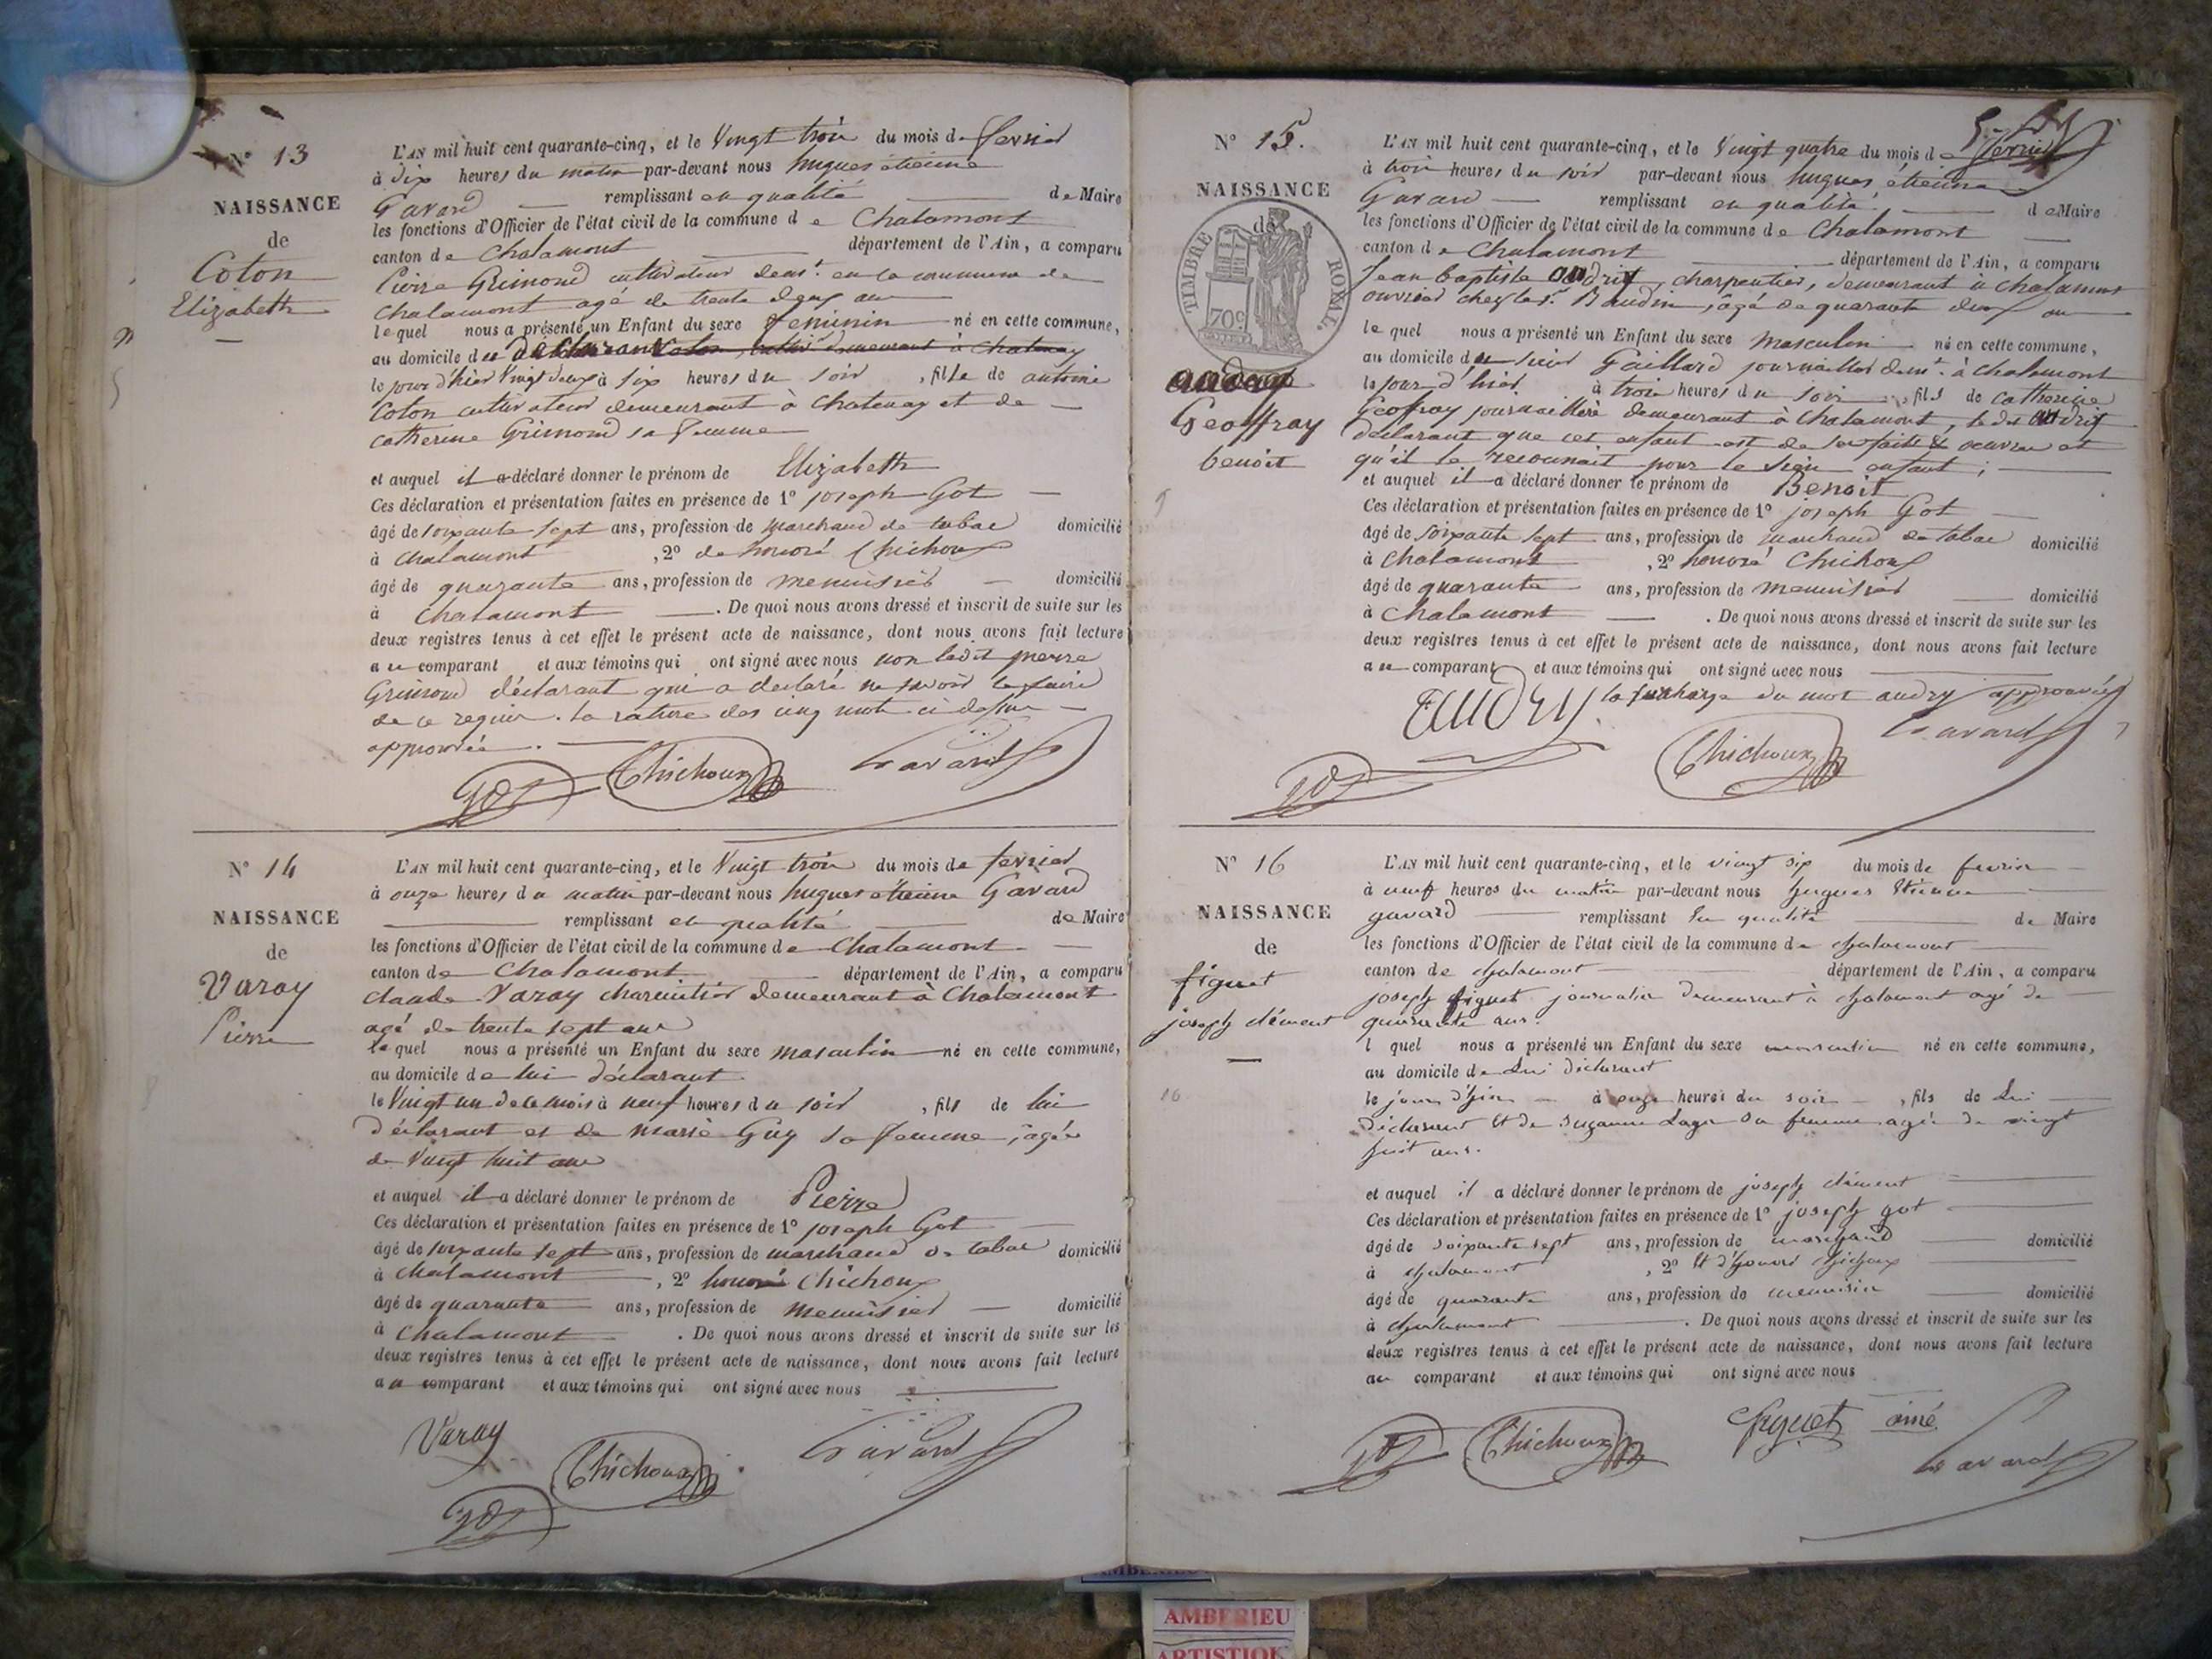 N° 13
NAISSANCE
de
Coton
Elizabeth
L'AN mil huit cent quarante-cinq, et le Vingt trois du mois de fevrier
à dix heures du matin par-devant nous hugues étienne
Gavard remplissant en qualité de Maire
les fonctions d'Officier de l'état civil de la commune de Chalamont
canton de Chalamont département de l'Ain, a comparu
Pierre Grimond cultivateur demt. en la commune de
Chalamont agé de trente deux ans
lequel nous a présenté un Enfant du sexe feminin né en cette commune,
au domicile du declarant Coton demeurant à Chatenay
le jour d'hier Vingt deux à six heures du soir, fille de antoine
Coton cultivateur demeurant à Chatenay et de
Catherine Grimond sa femme
et auquel il a déclaré donner le prénom de Elizabeth
Ces déclaration et présentation faites en présence de 1° joseph Got
âgé de soixante sept ans, profession de marchand de tabac domicilié
à Chalamont, 2° de honoré Chichoux
âgé de quarante ans, profession de menuisier domicilié
à Chalamont. De quoi nous avons dressé et inscrit de suite sur les
deux registres tenus à cet effet le présent acte de naissance, dont nous avons fait lecture
au comparant et aux témoins qui ont signé avec nous non ledit pierre
Grimond déclarant qui a declaré ne savoir le faire
de ce requis. la rature des cinq mots ci dessus
approuvée.
Got Chichoux Gavard
N° 14
NAISSANCE
de
Varay
Pierre
L'AN mil huit cent quarante-cinq, et le Vingt trois du mois de fevrier
à onze heures du matin par-devant nous hugues étienne Gavard
remplissant en qualité de Maire
les fonctions d'Officier de l'état civil de la commune de Chalamont
canton de Chalamont département de l'Ain, a comparu
claude Varay demeurant à Chalamont
agé de trente sept ans
lequel nous a présenté un Enfant du sexe masculin né en cette commune,
au domicile de lui déclarant
le Vingt un de ce mois à neuf heures du soir, fils de lui
déclarant et de marie Guy sa femme, âgée
de Vingt huit ans
et auquel il a déclaré donner le prénom de Pierre
Ces déclaration et présentation faites en présence de 1° joseph Got
âgé de soixante sept ans, profession de marchand de tabac domicilié
à Chalamont, 2° honoré Chichoux
âgé de quarante ans, profession de menuisier domicilié
à Chalamont. De quoi nous avons dressé et inscrit de suite sur les
deux registres tenus à cet effet le présent acte de naissance, dont nous avons fait lecture
au comparant et aux témoins qui ont signé avec nous
Varay
Chichoux Gavard
Got
N° 15.
NAISSANCE
de
TIMBRE ROYAL.
70c
Geoffray
benoit
L'AN mil huit cent quarante-cinq, et le Vingt quatre du mois de fevrier
à trois heures du soir par-devant nous hugues étienne
Gavard remplissant en qualité de Maire
les fonctions d'Officier de l'état civil de la commune de Chalamont
canton de Chalamont département de l'Ain, a comparu
Jean baptiste andrix, charpentier, demeurant à Chalamont
ouvrier chez le sr. Baudin, âgé de quarante deux ans
lequel nous a présenté un Enfant du sexe masculin né en cette commune,
au domicile du sieur Gaillard journaillier demt. à Chalamont
le jour d'hier à trois heures du soir, fils de Catherine
Geoffray journaillière demeurant à Chalamont, ledit
déclarant que cet enfant est de ses faits & oeuvres et
qu'il le reconnait pour le sien enfant;
et auquel il a déclaré donner le prénom de Benoit
Ces déclaration et présentation faites en présence de 1° joseph Got
âgé de soixante sept ans, profession de marchand de tabac domicilié
à Chalamont, 2° honoré Chichoux
âgé de quarante ans, profession de menuisier domicilié
à Chalamont. De quoi nous avons dressé et inscrit de suite sur les
deux registres tenus à cet effet le présent acte de naissance, dont nous avons fait lecture
au comparant et aux témoins qui ont signé avec nous
la surcharge du mot audry approuvée
Audry Gavard
Got Chichoux
N° 16
NAISSANCE
de
figuet
joseph clément
16
L'AN mil huit cent quarante-cinq, et le vingt six du mois de fevrier
à neuf heures du matin par-devant nous hugues Etienne
gavard remplissant En qualité de Maire
les fonctions d'Officier de l'état civil de la commune de chalamont
canton de chalamont département de l'Ain, a comparu
joseph figuet journalier demeurant à chalamont agé de
quarante ans.
l quel nous a présenté un Enfant du sexe masculin né en cette commune,
au domicile de Lui déclarant
le jour d'hier à onze heures du soir, fils de Lui
déclarant Et de Suzanne Lager sa femme agée de vingt
huit ans.
et auquel il a déclaré donner le prénom de joseph clément
Ces déclaration et présentation faites en présence de 1° joseph got
âgé de soixante sept ans, profession de marchand domicilié
à chalamont, 2° Et d'honoré chichoux
âgé de quarante ans, profession de menuisier domicilié
à chalamont. De quoi nous avons dressé et inscrit de suite sur les
deux registres tenus à cet effet le présent acte de naissance, dont nous avons fait lecture
au comparant et aux témoins qui ont signé avec nous
Got Chichoux figuet ainé
Gavard
AMBERIEU
AMBERIEU
ARTISTIQ